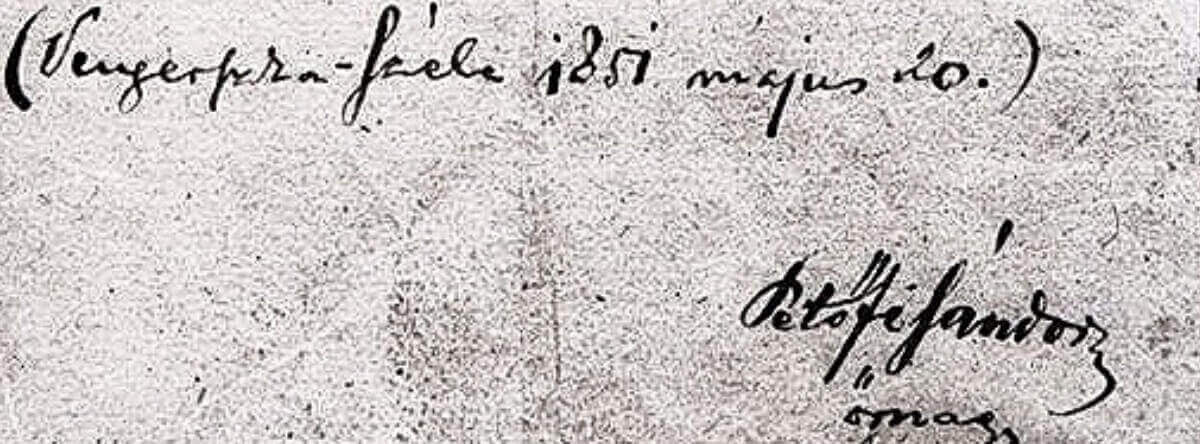 (Vengerszka-Széle 1851 május 20.)
Petőfi Sándor
őrnagy